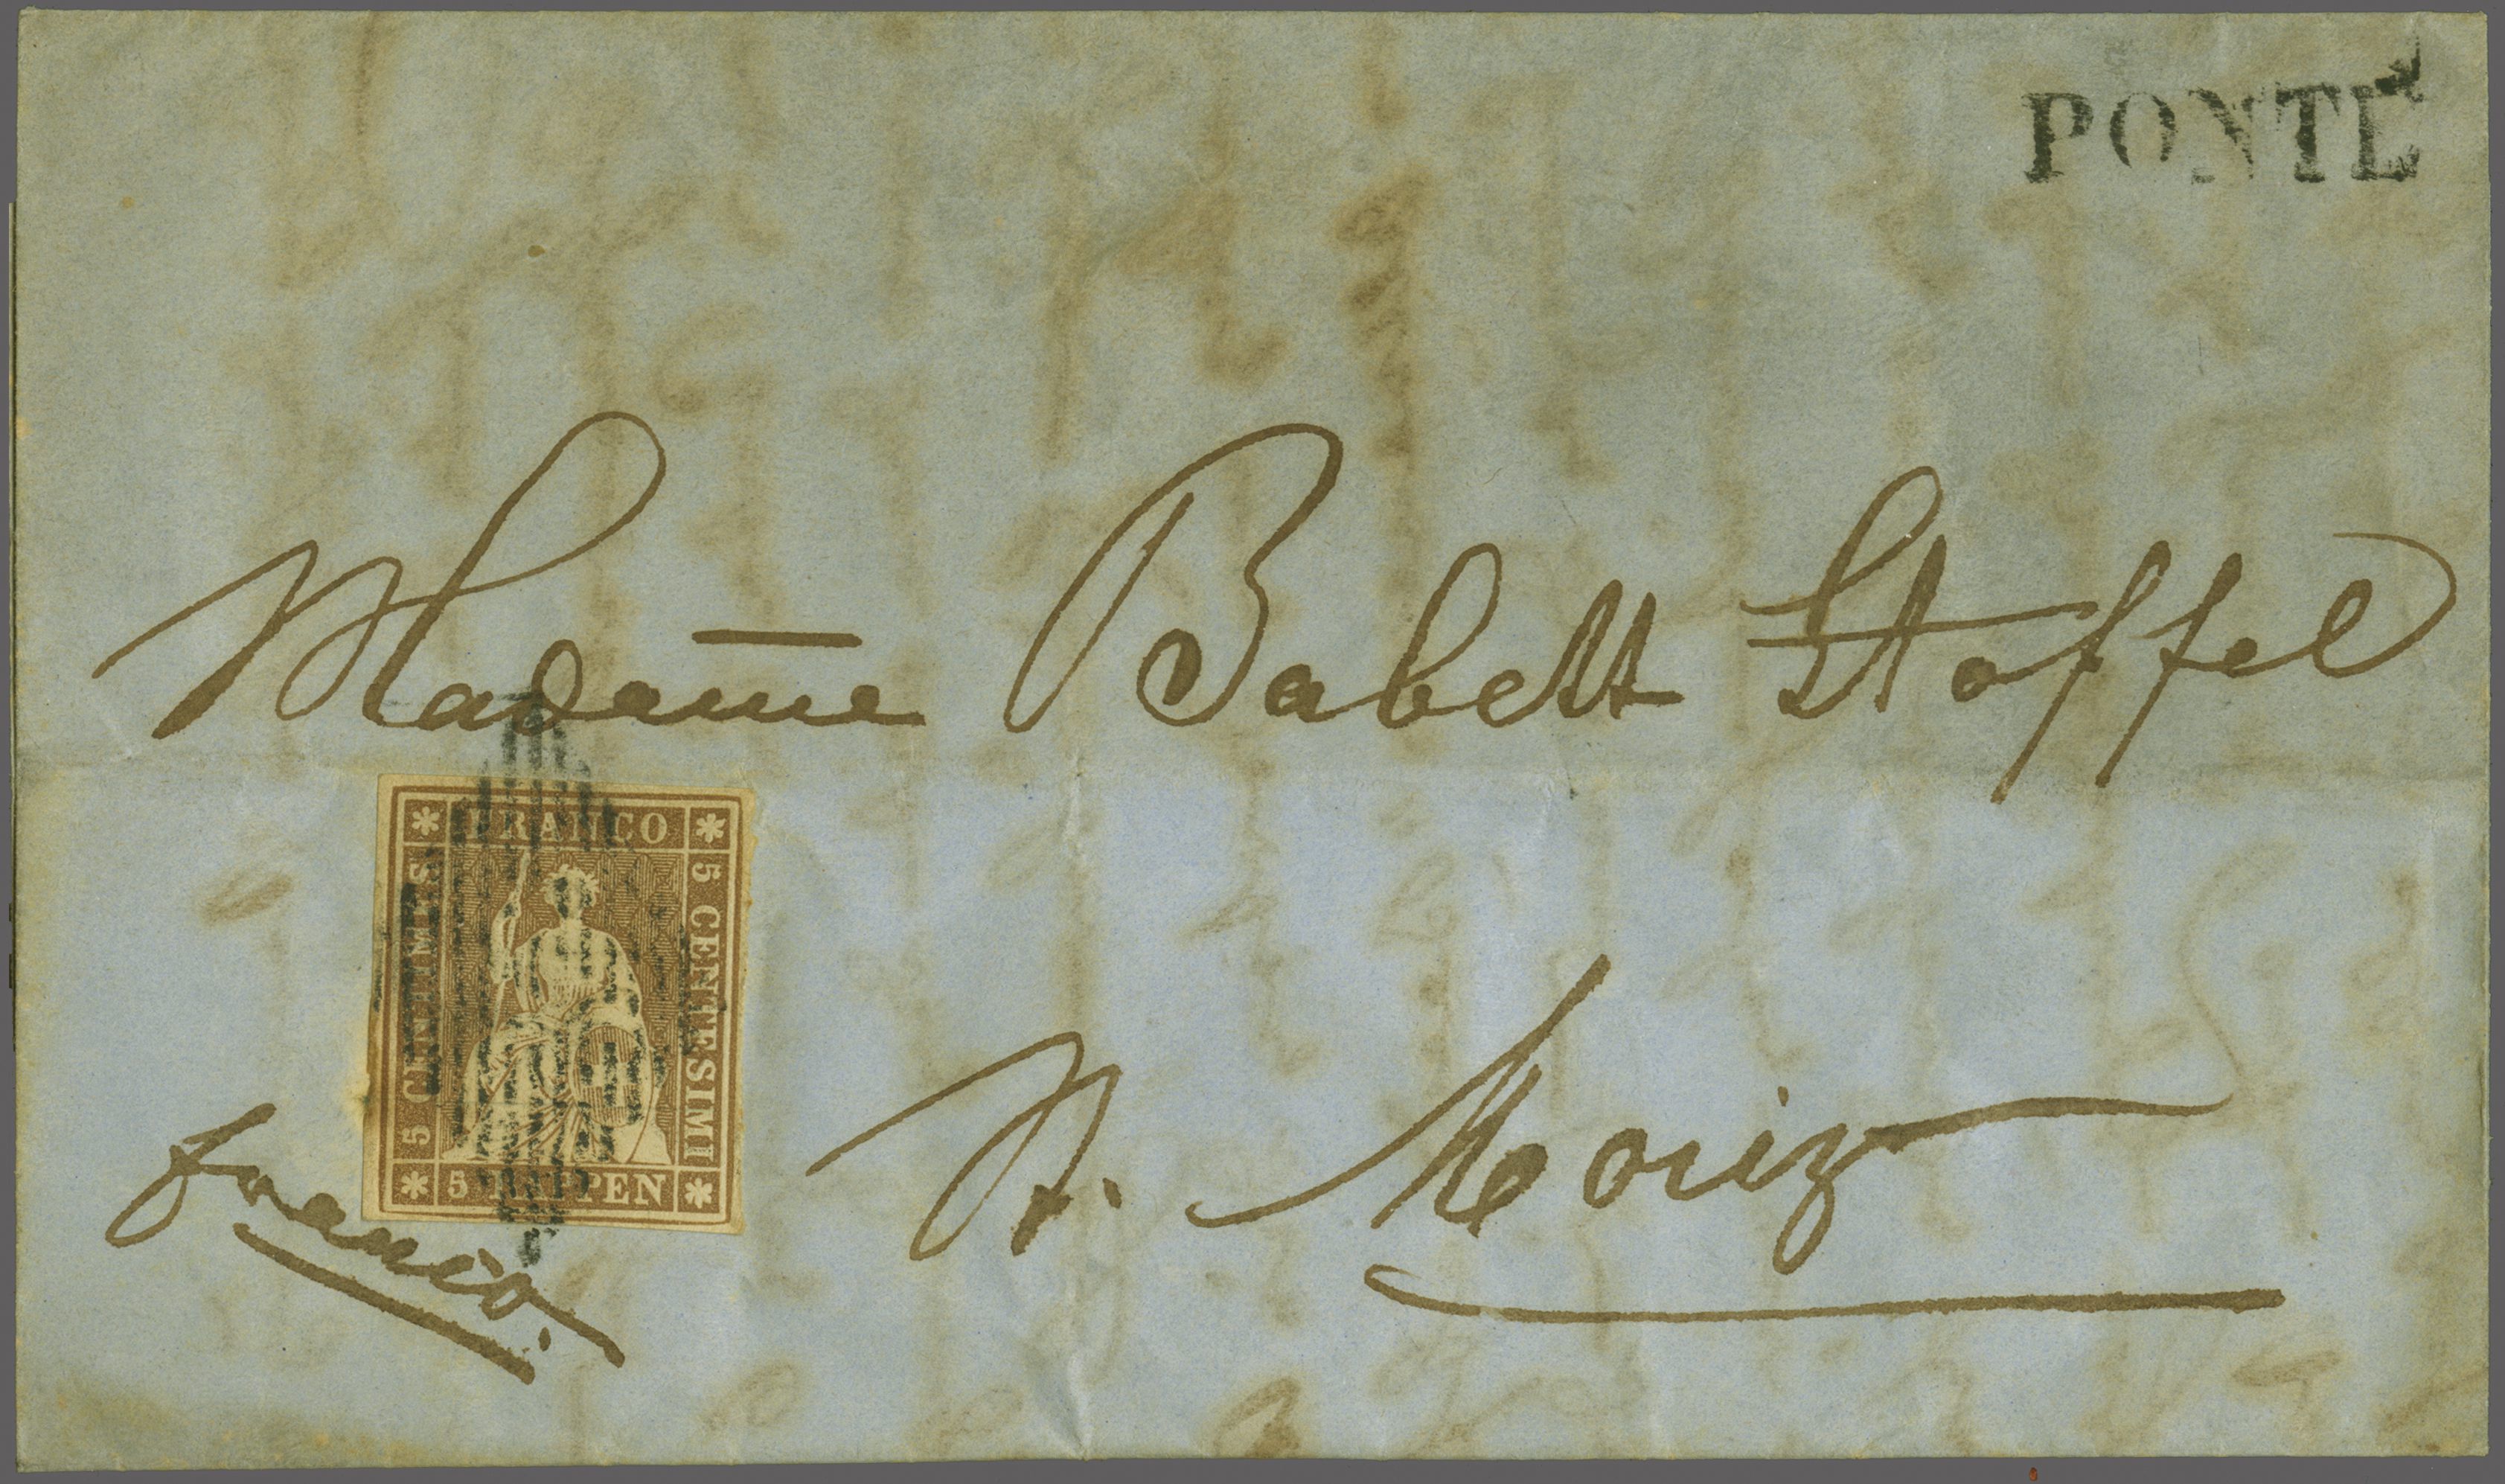 PONTE
Madame Babett Stoffel
FRANCO
5 CENTIMES
5 CENTESIMI
5 RAPPEN
St. Moriz
franco.